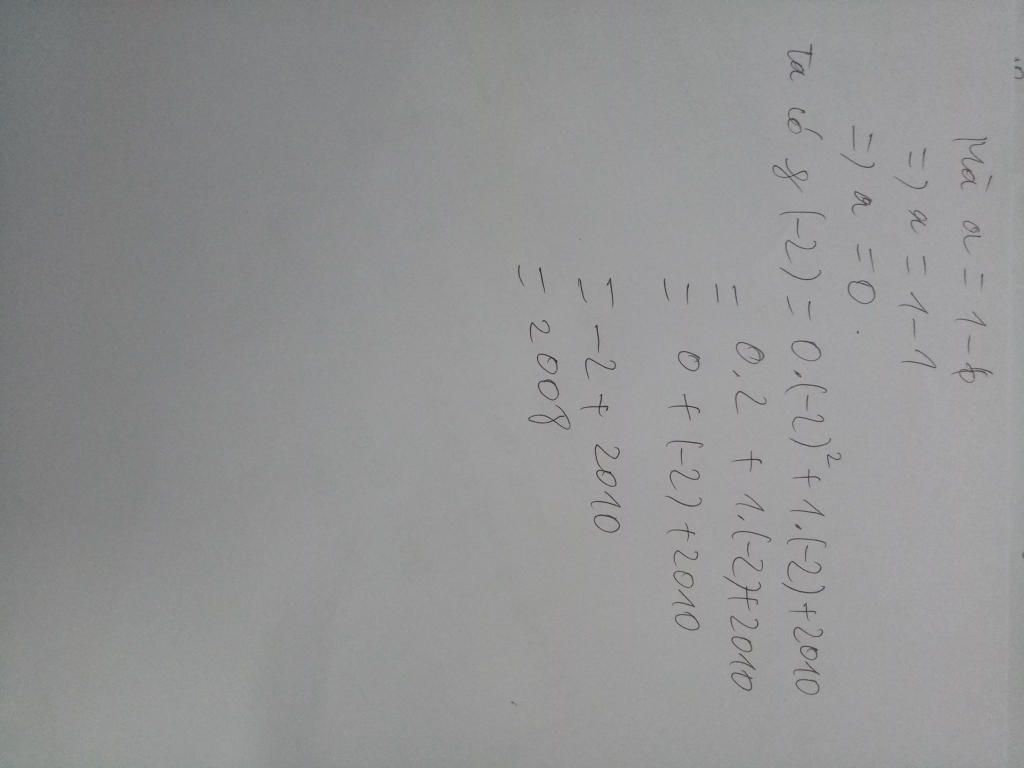 Mà a = 1 - b
=) a = 1 - 1
=) a = 0.
ta có f (-2) = 0.(-2)² + 1.(-2) + 2010
= 0.2 + 1.(-2) + 2010
= 0 + (-2) + 2010
= -2 + 2010
= 2008